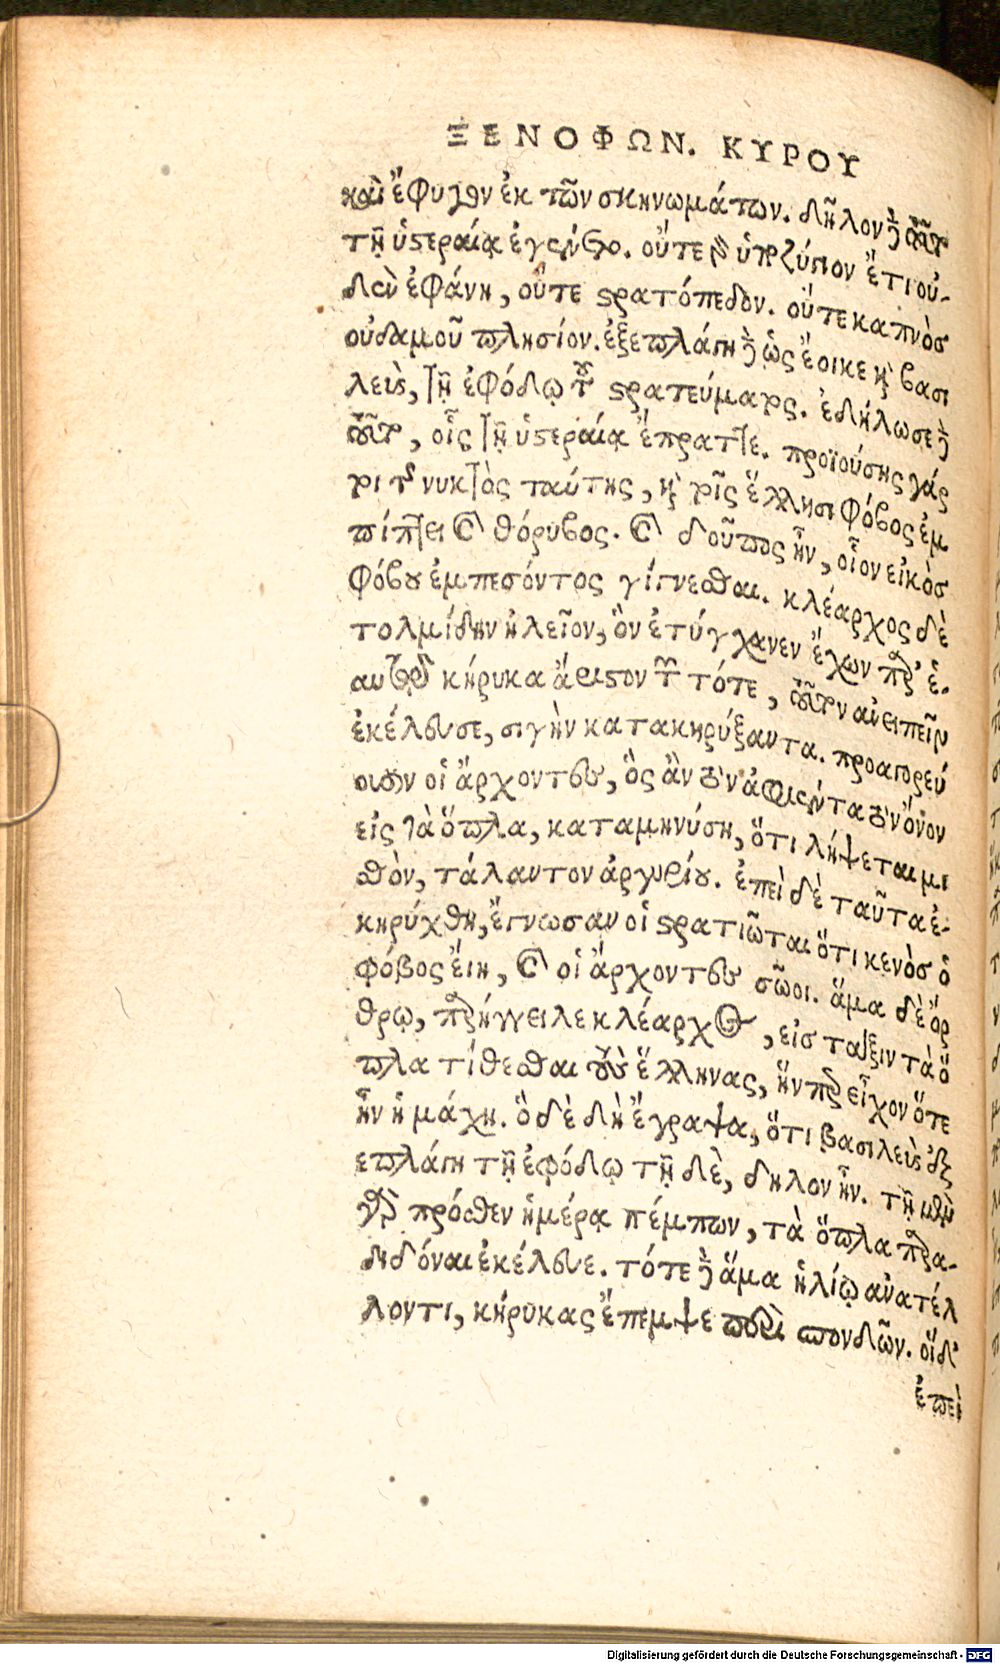 ΞΕΝΟΦΩΝ. ΚΥΡΟΥ
καὶ ἔφυγον ἐκ τῶν σκηνωμάτων. δῆλον δὲ τοῦτο
τῇ ὑστεραίᾳ ἐγένετο. οὔτε γὰρ ὑποζύγιον ἔτι οὐ-
δὲν ἐφάνη, οὔτε στρατόπεδον. οὔτε καπνὸσ
οὐδαμοῦ πλησίον. ἐξεπλάγη δὲ ὡς ἔοικε καὶ βασι
λεὺς, τῇ ἐφόδῳ τοῦ στρατεύματος. ἐδήλωσε δὲ
τοῦτο, οἷς τῇ ὑστεραίᾳ ἔπραττε. προϊούσης γάρ
τοι τῆς νυκτὸς ταύτης, καὶ τοῖς ἕλλησι φόβος ἐμ
πίπτει καὶ θόρυβος. καὶ δοῦπος ἦν, οἷον εἰκὸσ
φόβου ἐμπεσόντος γίγνεσθαι. κλέαρχος δὲ
τολμίδην ἠλεῖον, ὃν ἐτύγχανεν ἔχων παρ' ἑ-
αυτῷ κήρυκα ἄριστον τῶν τότε, τοῦτον ἀνειπεῖν
ἐκέλευσε, σιγὴν κατακηρύξαντα. προαγορεύ
ουσιν οἱ ἄρχοντες, ὃς ἂν τὸν ἀφιέντα τὸν ὄνον
εἰς τὰ ὅπλα, καταμηνύσῃ, ὅτι λήψεται μι
σθὸν, τάλαντον ἀργυρίου. ἐπεὶ δὲ ταῦτα ἐ-
κηρύχθη, ἔγνωσαν οἱ στρατιῶται ὅτι κενὸσ ὁ
φόβος εἴη, καὶ οἱ ἄρχοντες σῶοι. ἅμα δὲ ὄρ
θρῳ, παρήγγειλε κλέαρχος, εἰσ τάξιν τὰ ὅ
πλα τίθεσθαι τοὺς ἕλληνας, ἥνπερ εἶχον ὅτε
ἦν ἡ μάχη. ὃ δὲ δὴ ἔγραψα, ὅτι βασιλεὺς ἐξ
επλάγη τῇ ἐφόδῳ τῇ δὲ, δῆλον ἦν. τῇ μὲν
γὰρ πρόσθεν ἡμέρᾳ πέμπων, τὰ ὅπλα παρα-
διδόναι ἐκέλευε. τότε δὲ ἅμα ἡλίῳ ἀνατέλ
λοντι, κήρυκας ἔπεμψε περὶ σπονδῶν. οἵδ'
ἐπεὶ
Digitalisierung gefördert durch die Deutsche Forschungsgemeinschaft - DFG